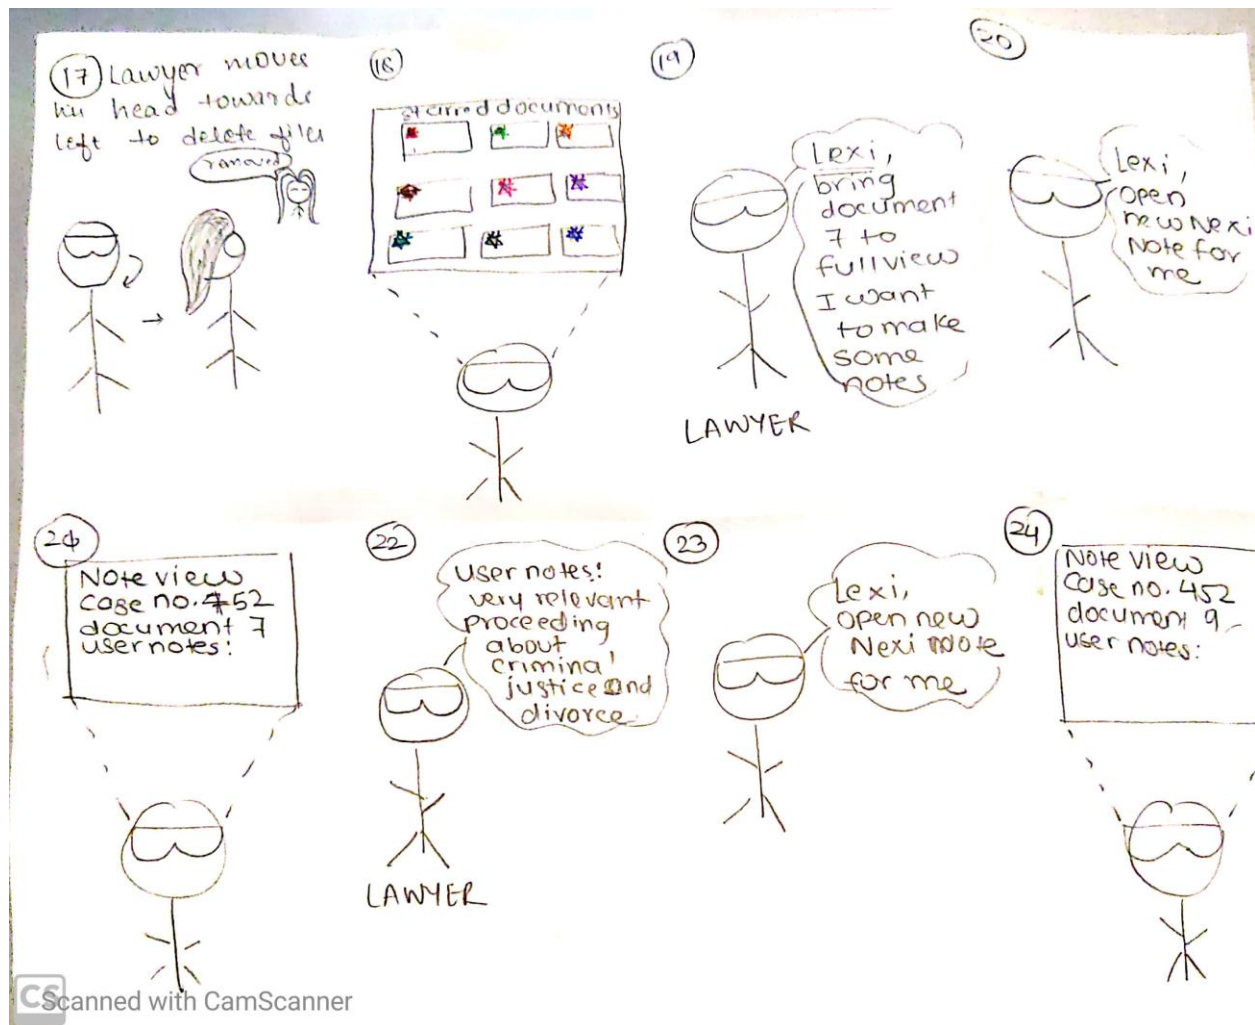 17 Lawyer moves
his head towards
left to delete files
removed
18
starred documents
19
Lexi,
bring
document
7 to
fullview
I want
to make
some
notes
LAWYER
20
Lexi,
open
new Nexi
Note for
me
Note view
case no. 452
document 7
user notes:
22
user notes:
very relevant
proceeding
about
criminal
justice and
divorce
LAWYER
23
Lexi,
open new
Nexi Note
for me
24
Note view
case no. 452
document 9
user notes:
CS Scanned with CamScanner